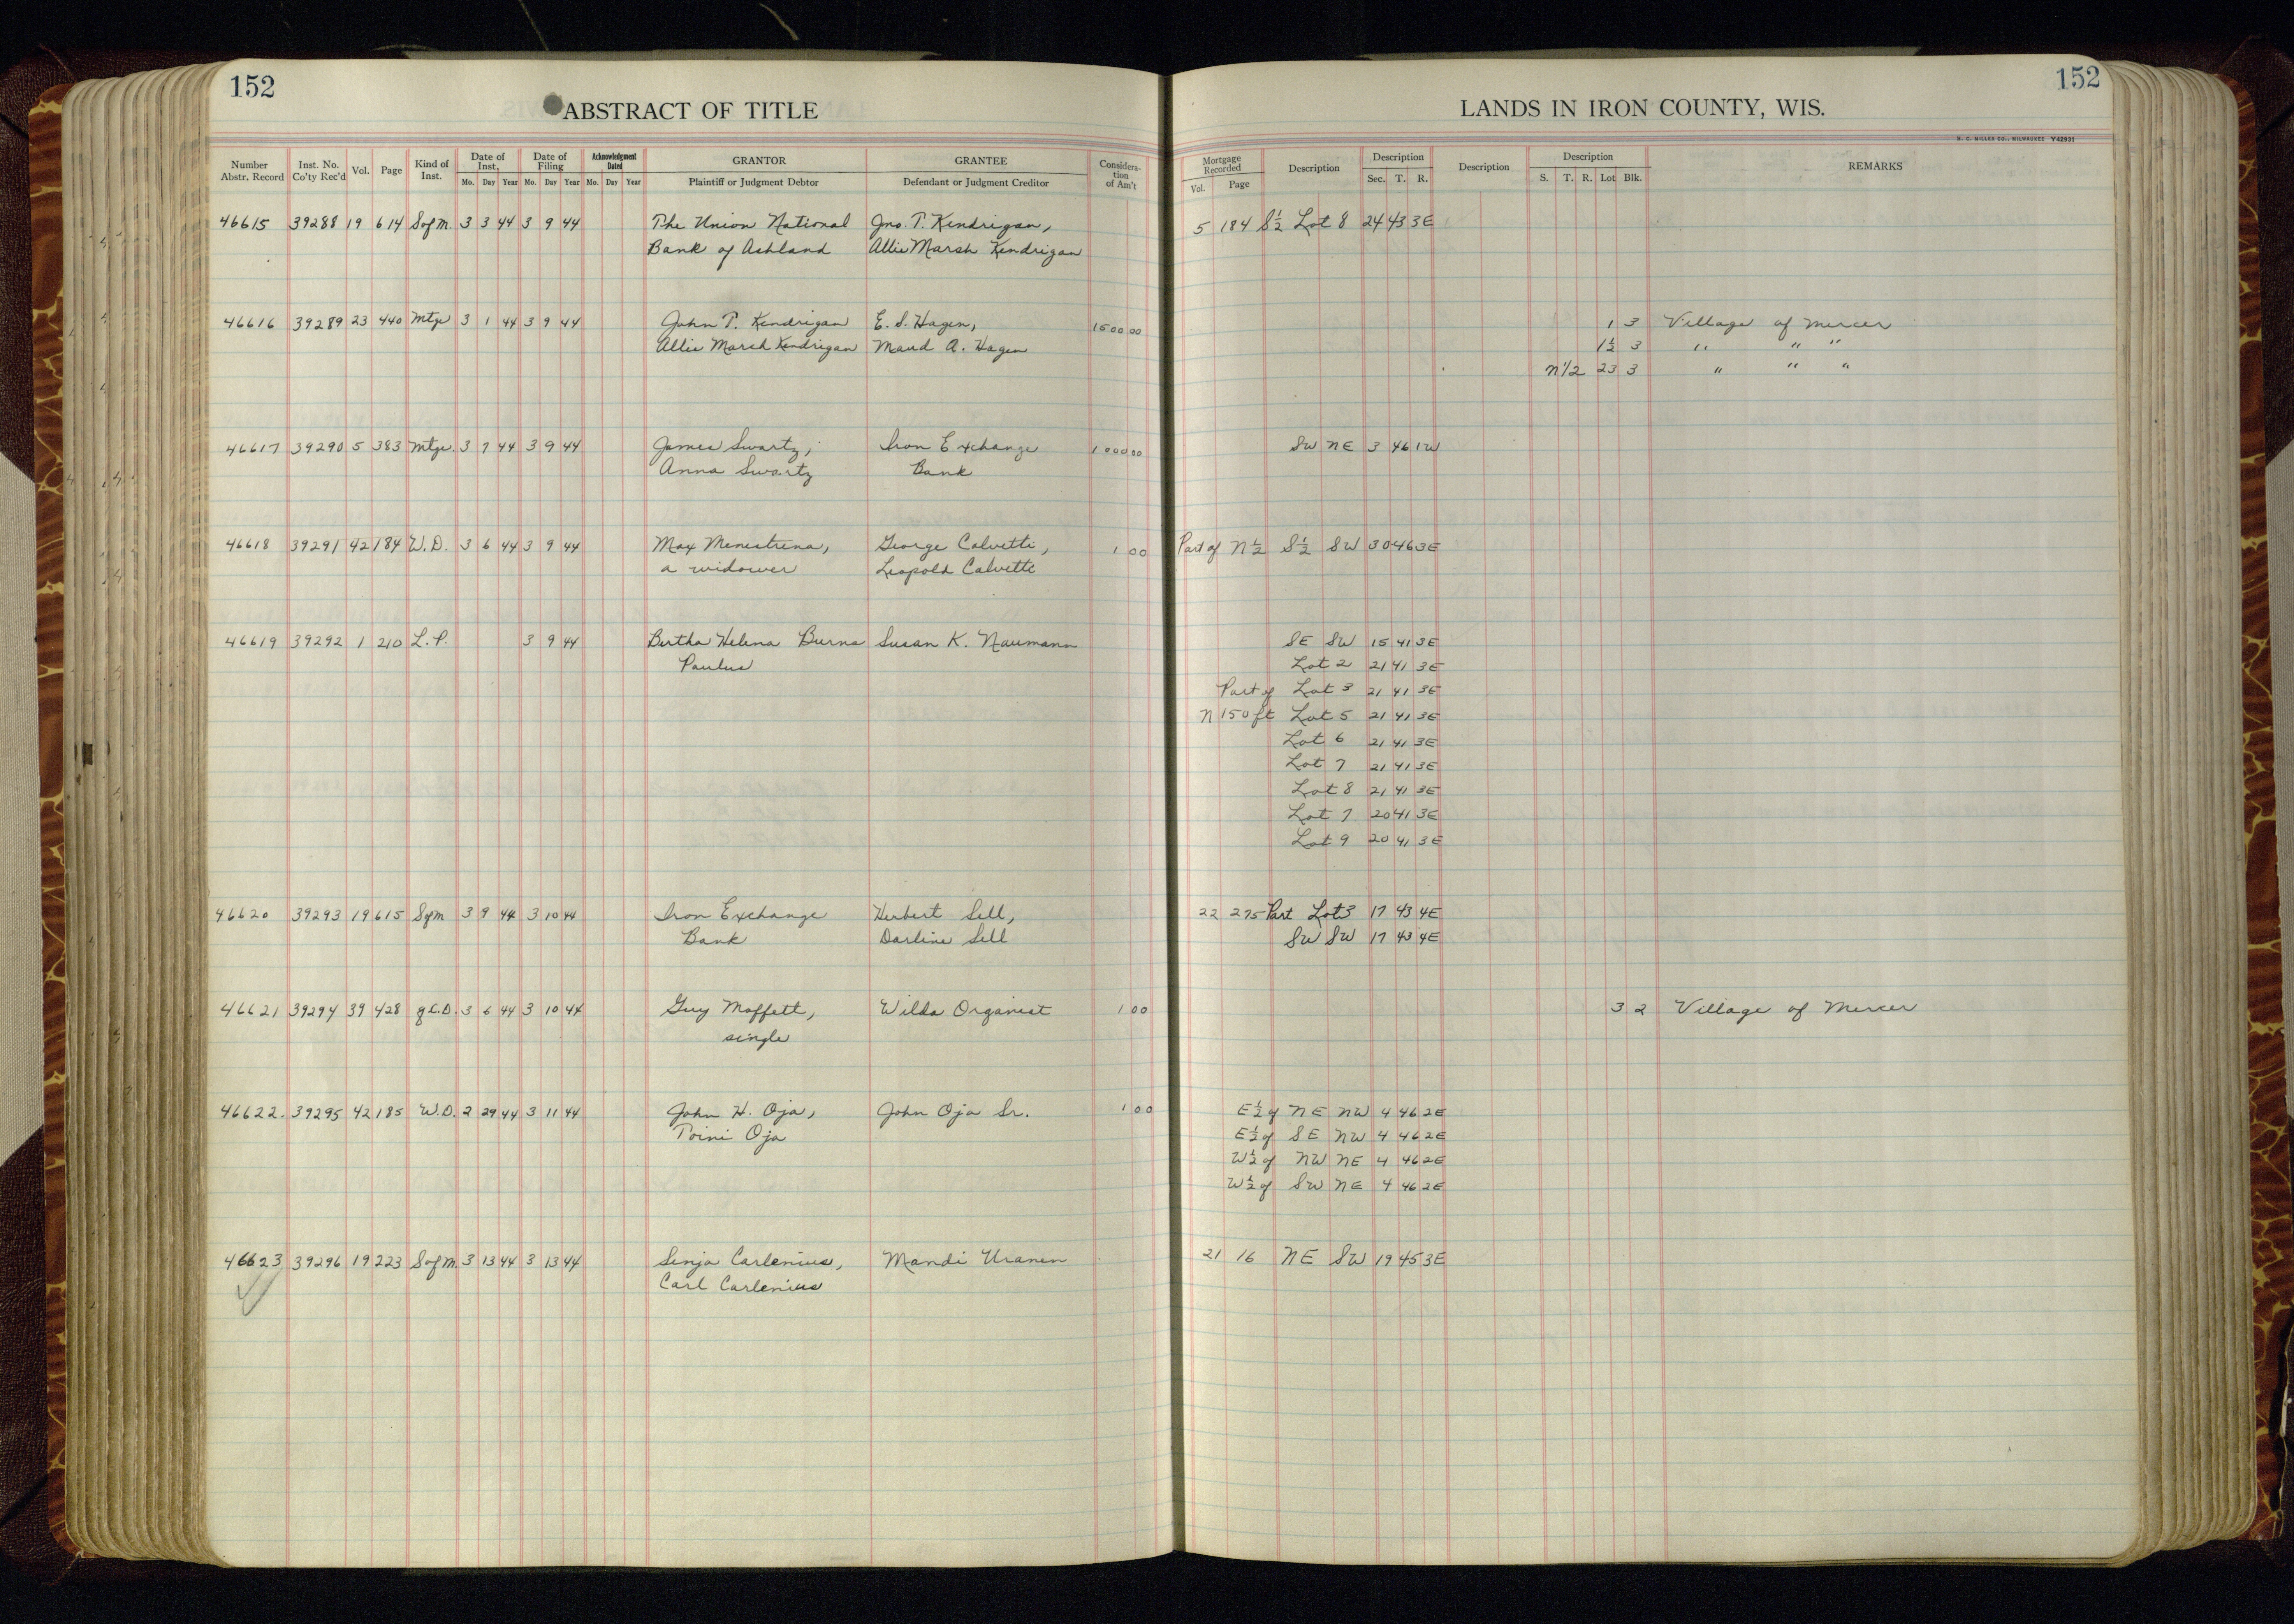 152
ABSTRACT OF TITLE
Number Abstr. Record Inst. No. Co'ty Rec'd Vol. Page Kind of Inst. Date of Inst. Mo. Day Year Date of Filing Mo. Day Year Acknowledgment Dated Mo. Day Year GRANTOR Plaintiff or Judgment Debtor GRANTEE Defendant or Judgment Creditor Considera-tion of Am't
152
LANDS IN IRON COUNTY, WIS.
H. C. MILLER CO., MILWAUKEE Y42931
Mortgage Recorded Vol. Page Description Description Sec. T. R. Description Description S. T. R. Lot Blk. REMARKS
46615 39288 19 614 S of M. 3 3 44 3 9 44 The Union National Jno. T. Kendrigan, 5 184 S½ Lot 8 24 43 3E
Bank of Ashland Allie Marsh Kendrigan
46616 39289 23 440 Mtge 3 1 44 3 9 44 John T. Kendrigan E. S. Hagen, 1500 00 1 3 Village of Mercer
Allie Marsh Kendrigan Maud A. Hagen 1½ 3 " " "
N 1/2 23 3 " " "
46617 39290 5 383 Mtge. 3 7 44 3 9 44 James Swartz, Iron Exchange 1000 00 SW NE 3 46 1W
Anna Swartz Bank
46618 39291 42 184 W.D. 3 6 44 3 9 44 Max Menestrina, George Calvetti, 1 00 Part of N½ S½ SW 30 46 3E
a widower Leopold Calvetti
46619 39292 1 210 L.P. 3 9 44 Bertha Helena Burns Susan K. Naumann SE SW 15 41 3E
Paulus Lot 2 21 41 3E
Part of Lot 3 21 41 3E
N 150 ft Lot 5 21 41 3E
Lot 6 21 41 3E
Lot 7 21 41 3E
Lot 8 21 41 3E
Lot 7 20 41 3E
Lot 9 20 41 3E
46620 39293 19 615 S of M 3 9 44 3 10 44 Iron Exchange Herbert Sell, 22 275 Part Lot 3 17 43 4E
Bank Darline Sell SW SW 17 43 4E
46621 39294 39 428 Q.C.D. 3 6 44 3 10 44 Guy Moffett, Wilda Organist 1 00 3 2 Village of Mercer
single
46622. 39295 42 185 W.D. 2 29 44 3 11 44 John H. Oja, John Oja Sr. 1 00 E½ of NE NW 4 46 2E
Toini Oja E½ of SE NW 4 46 2E
W½ of NW NE 4 46 2E
W½ of SW NE 4 46 2E
46623 39296 19 223 S of M. 3 13 44 3 13 44 Senja Carlenius, Mandi Uranen 21 16 NE SW 19 45 3E
Carl Carlenius